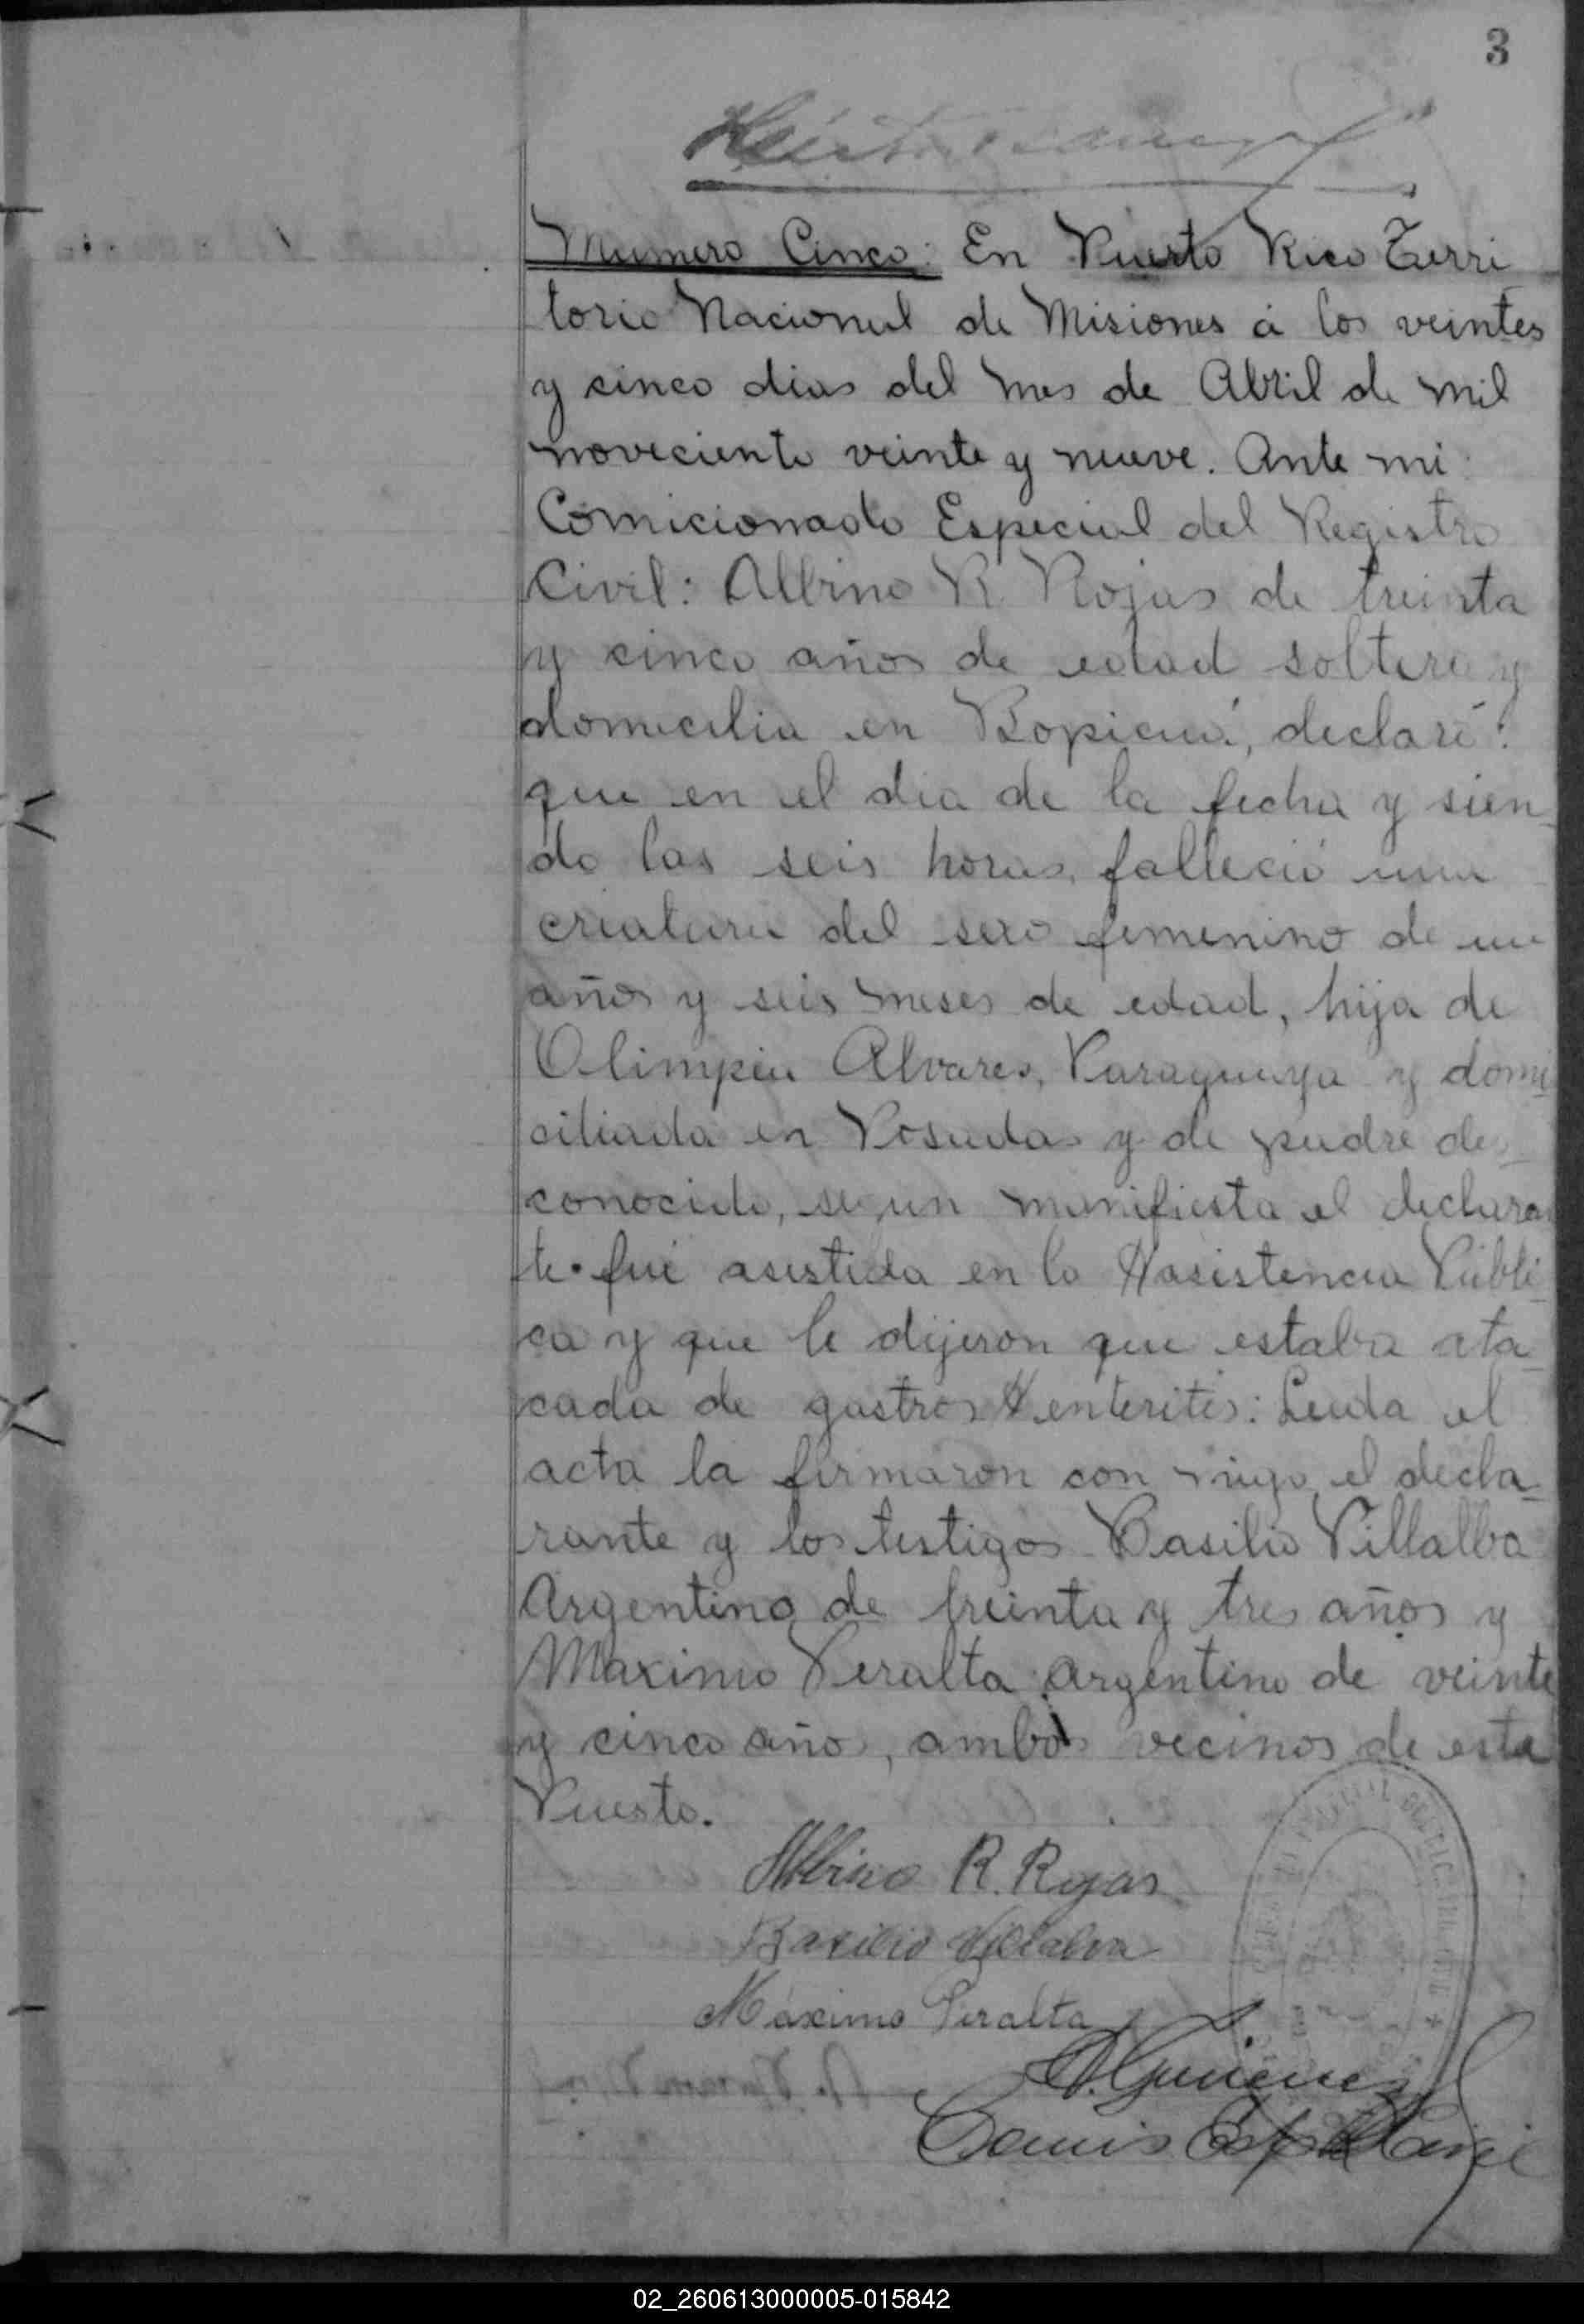 3
Numero Cinco: En Puerto Rico Terri
torio Nacional de Misiones á los veintes
y cinco dias del mes de Abril de mil
noveciento veinte y nueve. Ante mi:
Comicionado Especial del Registro
Civil: Albino R. Rojas de treinta
y cinco años de edad soltero y
domicilia en Bopicuá, declaré:
que en el dia de la fecha y sien_
do las seis horas, falleció una
criatura del sexo femenino de un
años y seis meses de edad, hija de
Olimpia Alvares, Paraguaya y domi
ciliada en Posadas y de padre des_
conocido, segun manifiesta el declaran
te. fué asistida en la Hasistencia Públi_
ca y que le dijeron que estaba ata_
cada de gastros Henteritis: Leida el
acta la firmaron con migo el decla_
rante y los testigos Basilio Villalba
Argentino de treinta y tres años y
Maximo Peralta argentino de veinte
y cinco años, ambos vecinos de esta
Puesto.
Albino R. Rojas
Basilio Villalva
Máximo Peralta
02_260613000005-015842